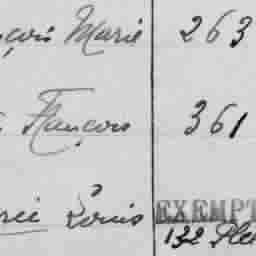 çois Marie 263
François 361
rie Louis EXEMPT
132